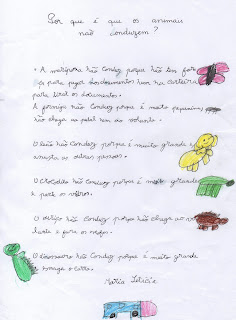 Por que é que os animais
não conduzem?
• A mariposa não conduz porque não tem
para pagar os documentos nem na carteira
para tirar os documentos.
A formiga não conduz porque é muito pequenina,
não chega ao pedal nem ao volante.
O leão não conduz porque é muito grande e
assusta as outras pessoas.
O crocodilo não conduz porque é muito grande
e parte os vidros.
O ouriço não conduz porque não chega ao vo
lante e fura os
O dinossauro não conduz porque é muito grande
e esmaga o carro.
Maria Letícia